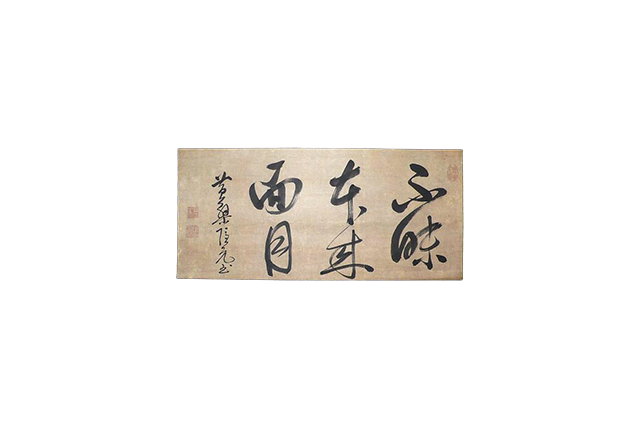 不昧
本来
面目
黄檗隠元書